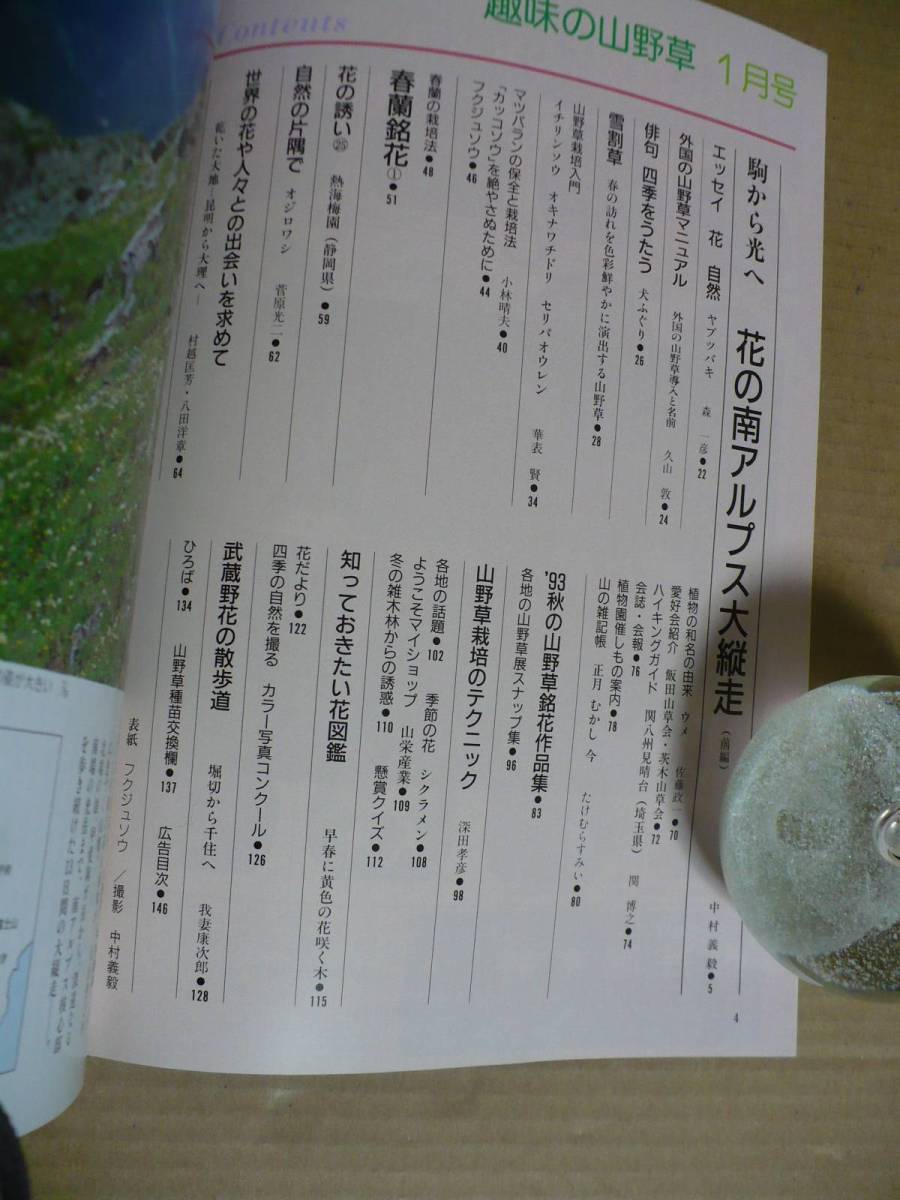 Contents
趣味の山野草 1月号
駒から光へ 花の南アルプス大縦走(前編) 中村義毅●5
エッセイ 花 自然 ヤブツバキ 森 一彦●22
外国の山野草マニュアル 外国の山野草導入と名前 久山 敦●24
俳句 四季をうたう 犬ふぐり●26
雪割草 春の訪れを色彩鮮やかに演出する山野草●28
山野草栽培入門
イチリンソウ オキナワチドリ セリバオウレン 華表 賢●34
マツバランの保全と栽培法 小林晴夫●40
「カッコソウ」を絶やさぬために●44
フクジュソウ●46
春蘭の栽培法●48
春蘭銘花①●51
花の誘い㉕ 熱海梅園(静岡県)●59
自然の片隅で オジロワシ 菅原光二●62
世界の花や人々との出会いを求めて
乾いた大地―昆明から大理へ― 村越匡芳・八田洋章●64
植物の和名の由来 ウメ 佐藤政一●70
愛好会紹介 飯田山草会・茨木山草会●72
ハイキングガイド 関八州見晴台(埼玉県) 関 博之●74
会誌・会報●76
植物園催しもの案内●78
山の雑記帳 正月 むかし 今 たけむらすみい●80
'93秋の山野草銘花作品集●83
各地の山野草展スナップ集●96
山野草栽培のテクニック 深田孝彦●98
各地の話題●102 季節の花 シクラメン●108
ようこそマイショップ 山栄産業●109
冬の雑木林からの誘惑●110 懸賞クイズ●112
知っておきたい花図鑑 早春に黄色の花咲く木●115
花だより●122
四季の自然を撮る カラー写真コンクール●126
武蔵野花の散歩道 堀切から千住へ 我妻康次郎●128
ひろば●134 山野草種苗交換欄●137 広告目次●146
表紙 フクジュソウ/撮影 中村義毅
4